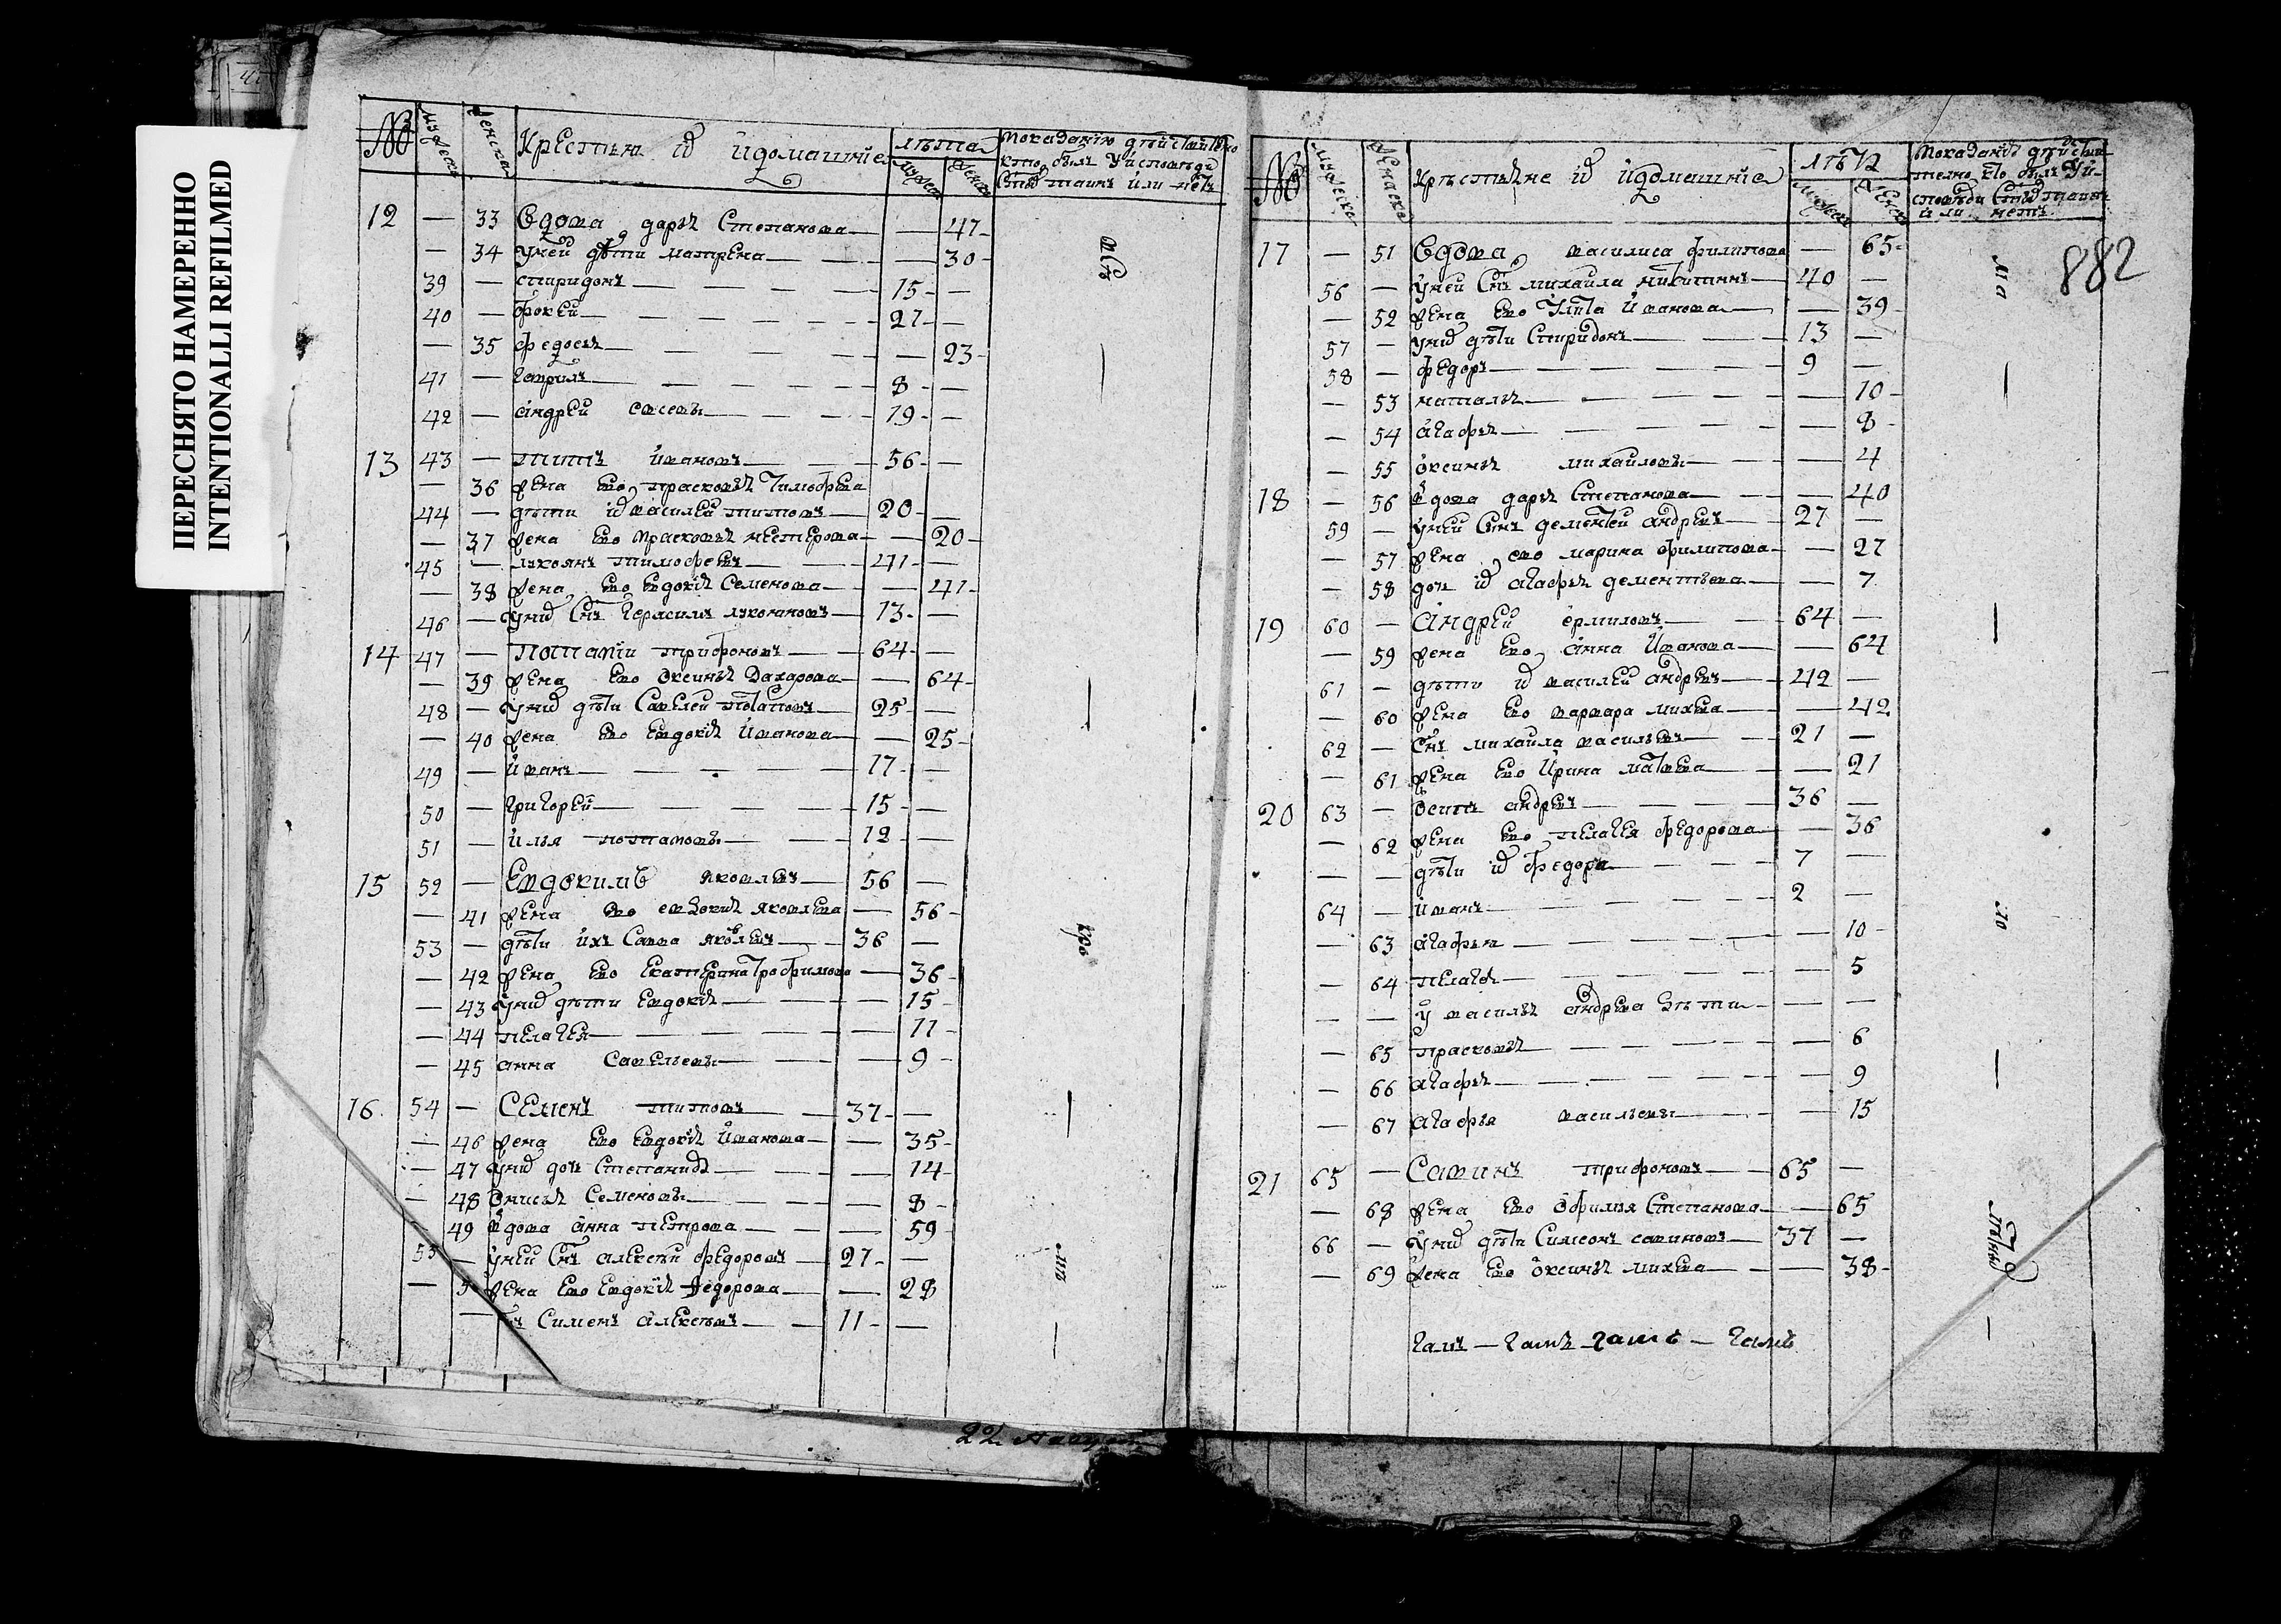 ПЕРЕСНЯТО НАМЕРЕННО
INTENTIONALLI REFILMED
№ мужеска женска Крестьяне и домашние лѣта
мужеска женска
12 — 33 Вдова дарья Степанова — — 47
— 34 У ней дѣти матрена — — 30
39 — спиридонъ — 15 —
40 — фокей — 27 —
— 35 федосья — — 23
41 — гаврилъ — 8 —
42 — андрей — 19 —
13 43 — титъ ивановъ — 56 —
— 36 жена ево прасковья Тимофѣева
44 — дѣти их василей титовъ — 20 —
— 37 жена ево прасковья нестерова — — 20
45 — лукоянъ тимофеевъ — 41 —
— 38 жена ево Евдокия Семенова — — 41
46 — У них Снъ герасимъ лукояновъ — 13 —
14 47 — потапъ трифоновъ — 64 —
— 39 жена ево оксинья Захарова — — 64
48 — У них дѣти Савелей потаповъ — 25 —
— 40 жена ево Евдокия иванова — — 25
49 — иванъ — 17 —
50 — григорей — 15 —
51 — илья потаповы — 12 —
15 52 — Евдокимъ яковлевъ — 56 —
— 41 жена ево евдокия яковлева — 56
53 — дѣти ихъ Савва — 36 —
— 42 жена ево Екатерина Трофимова — 36
— 43 У них дѣти Евдокия — — 15
— 44 пелагея — — 11
— 45 анна савельевы — — 9
16 54 — Семенъ титовъ — 37 —
— 46 жена ево Евдокия иванова — — 35
— 47 У них дочь Степанида — — 14
— 48 онисья Семеновы — — 8
— 49 вдова анна петрова — — 59
55 — У ней Снъ алексѣй федоровъ — 27 —
— 50 жена ево Евдокия федорова — — 28
— Сименъ алексѣевъ — 11 —
22
№ мужеска женска Крестьяне и домашние лѣта
мужеска женска
882
17 — 51 Вдова василиса филипова — 65
56 — У ней Снъ михайла никитинъ — 40 —
— 52 жена ево Улита иванова — 39
57 — У них дѣти Спиридонъ — 13 —
58 — федоръ — 9 —
— 53 наталья — — 10
— 54 агафья — — 8
— 55 оксинья михайловы — — 4
18 — 56 вдова дарья Степанова — — 40
59 — У ней Снъ дементей андреевъ — 27 —
— 57 жена ево марина филипова — — 27
— 58 дочь их агафья дементьева — — 7
19 60 — андрей ермиловъ — 64 —
— 59 жена ево анна иванова — — 64
61 — дѣти их василей андреевъ — 42 —
— 60 жена ево варвара михеева — — 42
62 — Снъ михайла васильевъ — 21 —
— 61 жена ево ирина матвеева — — 21
20 63 — осипъ андреевъ — 36 —
— 62 жена ево пелагея федорова — — 36
— — дѣти их федоръ — 7 —
64 — иванъ — 2 —
— 63 агафья — — 10
— 64 пелагея — — 5
— — У василья андреева дѣти — — —
— 65 прасковья — — 6
— 66 агафья — — 9
— 67 агафья васильевы — — 15
21 65 — Савинъ трифоновъ — 65 —
— 68 жена ево офимья Степанова — 65
66 — У них дѣти Симеонъ савиновъ — 37 —
— 69 жена ево оксинья михеева — — 38